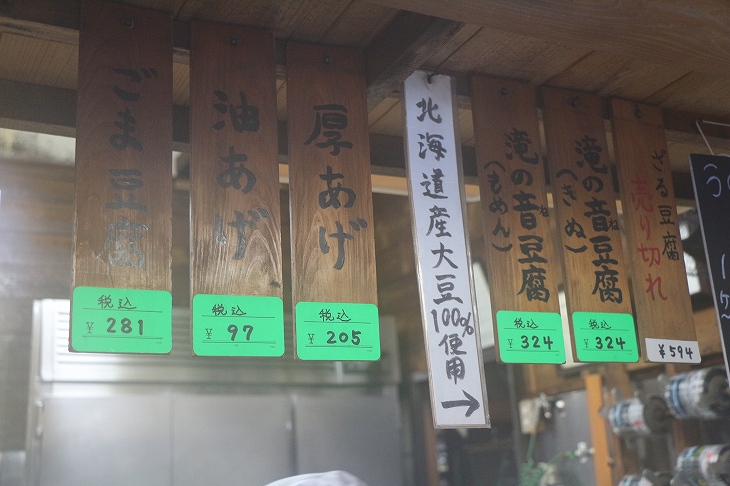 ごま豆腐
税込
¥ 281
油あげ
税込
¥ 97
厚あげ
税込
¥ 205
北海道産大豆100%使用→
滝の音豆腐
ね
(もめん)
税込
¥ 324
滝の音豆腐
ね
(きぬ)
税込
¥ 324
ざる豆腐
売り切れ
¥594